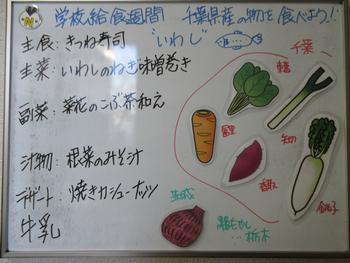 学校給食週間 千葉県産の物を食べよう!!
主食:きつね寿司
"いわし"
主菜:いわしのねぎ味噌巻き
副菜:菜花のこぶ茶和え
汁物:根菜のみそ汁
デザート:焼きカシューナッツ
牛乳
千葉
富里
香取
銚子
茨城
…栃木